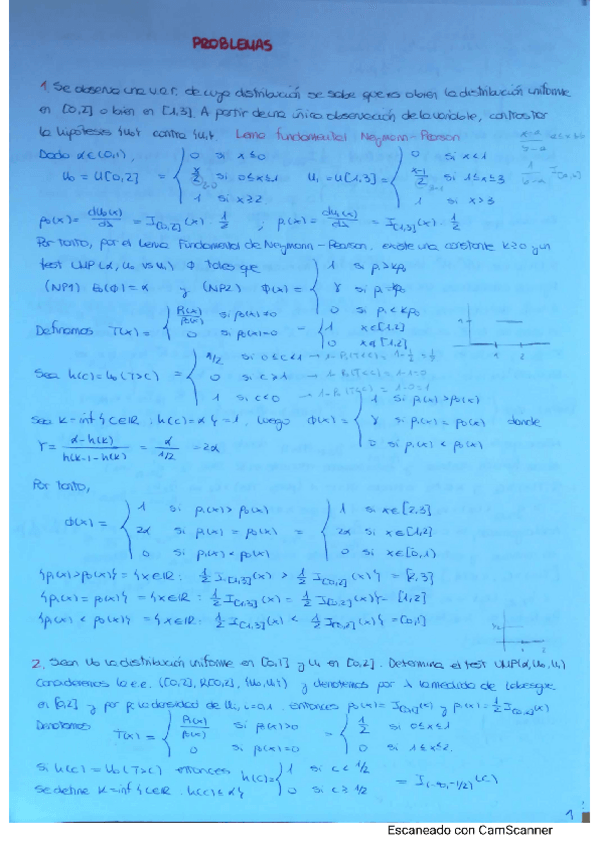 PROBLEMAS
1. Se observa una v.a.r. de cuya distribución se sabe que es o bien la distribución uniforme
en [0,2] o bien en [1,3]. A partir de una única observación de la variable, contrastar
la hipótesis {U0} contra {U1}. Lema fundamental Neymann-Pearson
Dado α∈(0,1),
U0 = U[0,2] = { 0 si x≤0 ; x/2 si 0≤x≤1 ; 1 si x≥2 U1 = U[1,3] = { 0 si x<1 ; x-1/2 si 1≤x≤3 ; 1 si x>3
p0(x) = dU0(x)/dλ = I[0,2](x) · 1/2 ; p1(x) = dU1(x)/dλ = I[1,3](x) · 1/2
Por tanto, por el Lema Fundamental de Neymann-Pearson, existe una constante k≥0 y un
test UMP(α, U0 vs U1) Φ tales que
(NP1) E0(Φ) = α y (NP2) Φ(x) = { 1 si p1>kp0 ; γ si p1=kp0 ; 0 si p1<kp0
Definimos T(x) = { p1(x)/p0(x) si p0(x)≠0 ; 0 si p0(x)=0 = { 1 x∈[1,2] ; 0 x∉[1,2]
Sea h(c) = U0(T>c) = { 1/2 si 0≤c<1 ; 0 si c≥1 ; 1 si c<0
Sea k = inf{c∈R : h(c)≤α} = 1, luego Φ(x) = { 1 si p1(x)>p0(x) ; γ si p1(x)=p0(x) ; 0 si p1(x)<p0(x) donde
γ = α-h(k)/h(k-)-h(k) = α/1/2 = 2α
Por tanto,
Φ(x) = { 1 si p1(x)>p0(x) ; 2α si p1(x)=p0(x) ; 0 si p1(x)<p0(x) = { 1 si x∈[2,3] ; 2α si x∈[1,2] ; 0 si x∈[0,1)
{p1(x)>p0(x)} = {x∈R : 1/2 I[1,3](x) > 1/2 I[0,2](x)} = [2,3]
{p1(x)=p0(x)} = {x∈R : 1/2 I[1,3](x) = 1/2 I[0,2](x)} = [1,2]
{p1(x)<p0(x)} = {x∈R : 1/2 I[1,3](x) < 1/2 I[0,2](x)} = [0,1]
2. Sean U0 la distribución uniforme en [0,1] y U1 en [0,2]. Determina el test UMP(α,U0,U1)
Consideremos la e.e. ([0,2], R[0,2], {U0,U1}) y denotemos por λ la medida de Lebesgue
en [0,2] y por pi la densidad de Ui, i=0,1. entonces p0(x) = I[0,1](x) y p1(x) = 1/2 I[0,2](x)
Denotamos T(x) = { p1(x)/p0(x) si p0(x)>0 ; 0 si p0(x)=0 = { 1/2 si 0≤x≤1 ; 0 si 1≤x≤2.
Si h(c) = U0(T>c) entonces h(c) = { 1 si c<1/2 ; 0 si c≥1/2 = I(-∞,-1/2)(c)
Se define k = inf{c∈R : h(c)≤α}
1
Escaneado con CamScanner